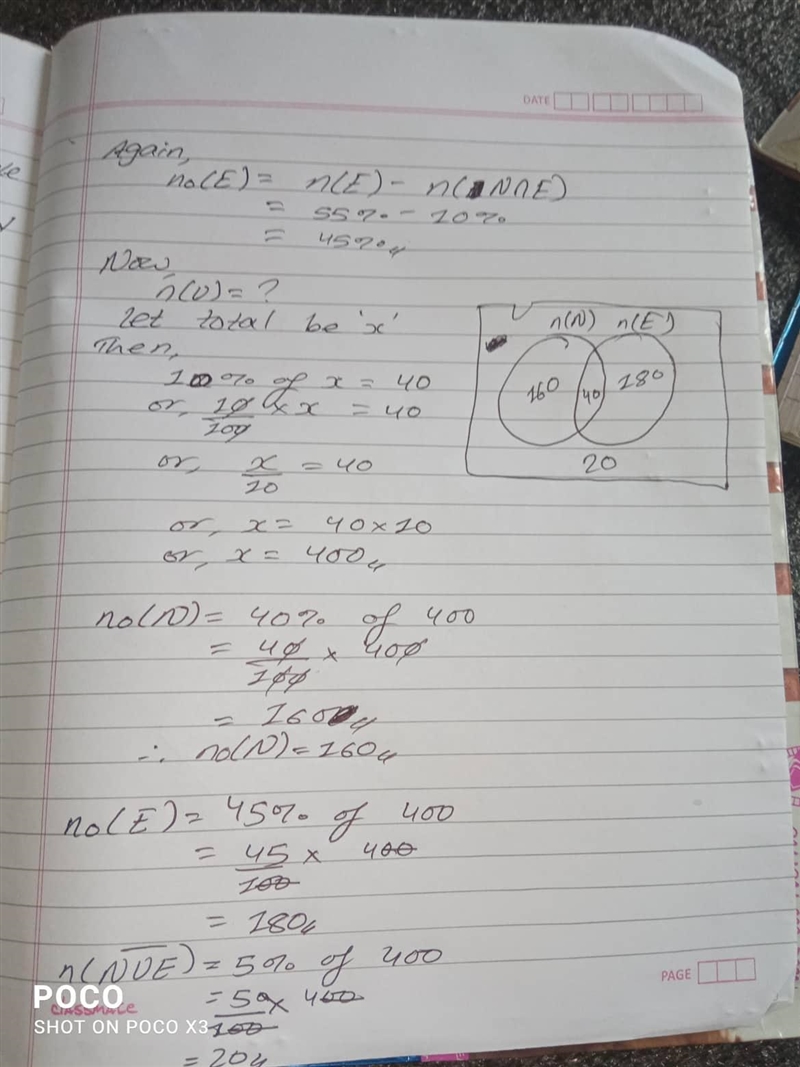 DATE
Again,
no(E) = n(E) - n(N∩E)
= 55% - 10%
= 45%
Now,
n(U) = ?
Let total be 'x'
Then,
n(N) n(E)
160 40 180
20
10% of x = 40
or, 10/100 × x = 40
or, x/10 = 40
or, x = 40×10
or, x = 400
no(N) = 40% of 400
= 40/100 × 400
= 160
∴ no(N) = 160
no(E) = 45% of 400
= 45/100 × 400
= 180
n(N∪E)‾ = 5% of 400
= 5/100 × 400
= 20
PAGE
CLASSMATE
POCO
SHOT ON POCO X3